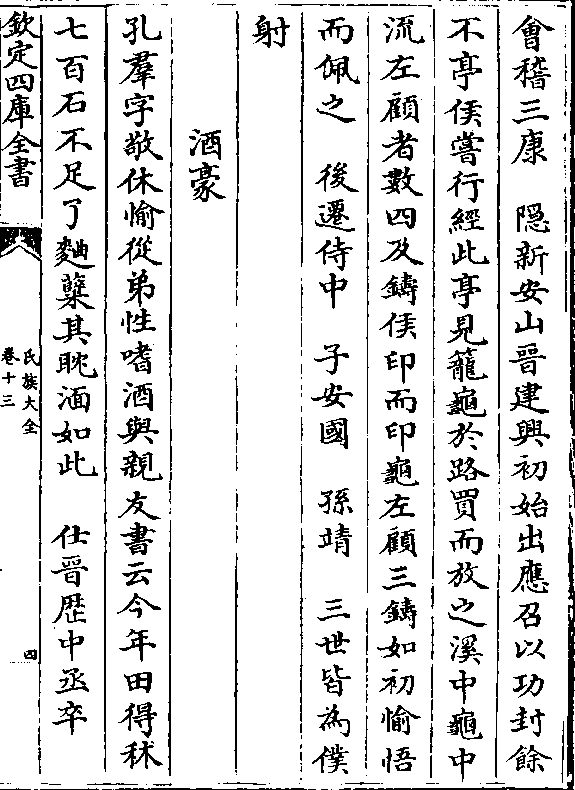 會稽三康　隠新安山晉建興初始出應召以功封餘
不亭侯嘗行經此亭見籠龜於路買而放之溪中龜中
流左顧者數四及鑄侯印而印龜左顧三鑄如初愉悟
而佩之　後遷侍中　子安國　孫靖　三世皆為僕
射
酒豪
孔羣字敬休愉從弟性嗜酒與親友書云今年田得秫
七百石不足了麴糵其耽湎如此　仕晉歴中丞卒
欽定四庫全書
氏族大全
卷十三
四